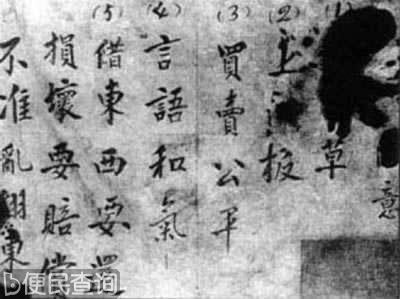 意
(1) 草
(2) 上板
(3) 買賣公平
(4) 言語和氣
(5) 借東西要還
損壞要賠償
不准亂翻東
便民查询